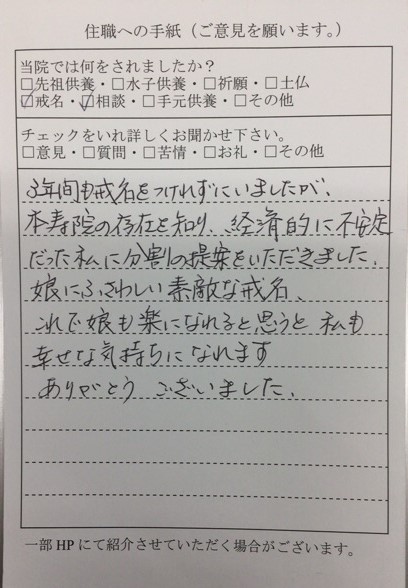 住職への手紙（ご意見を願います。）
当院では何をされましたか？
□先祖供養・□水子供養・□祈願・□土仏
☑戒名・☑相談・□手元供養・□その他
チェックをいれ詳しくお聞かせ下さい。
□意見・□質問・□苦情・□お礼・□その他
3年間も戒名をつけれずにいましたが、
本寿院の存在を知り、経済的に不安定
だった私に分割の提案をいただきました。
娘にふさわしい素敵な戒名、
これで娘も楽になれると思うと私も
幸せな気持ちになれます
ありがとうございました。
一部HPにて紹介させていただく場合がございます。